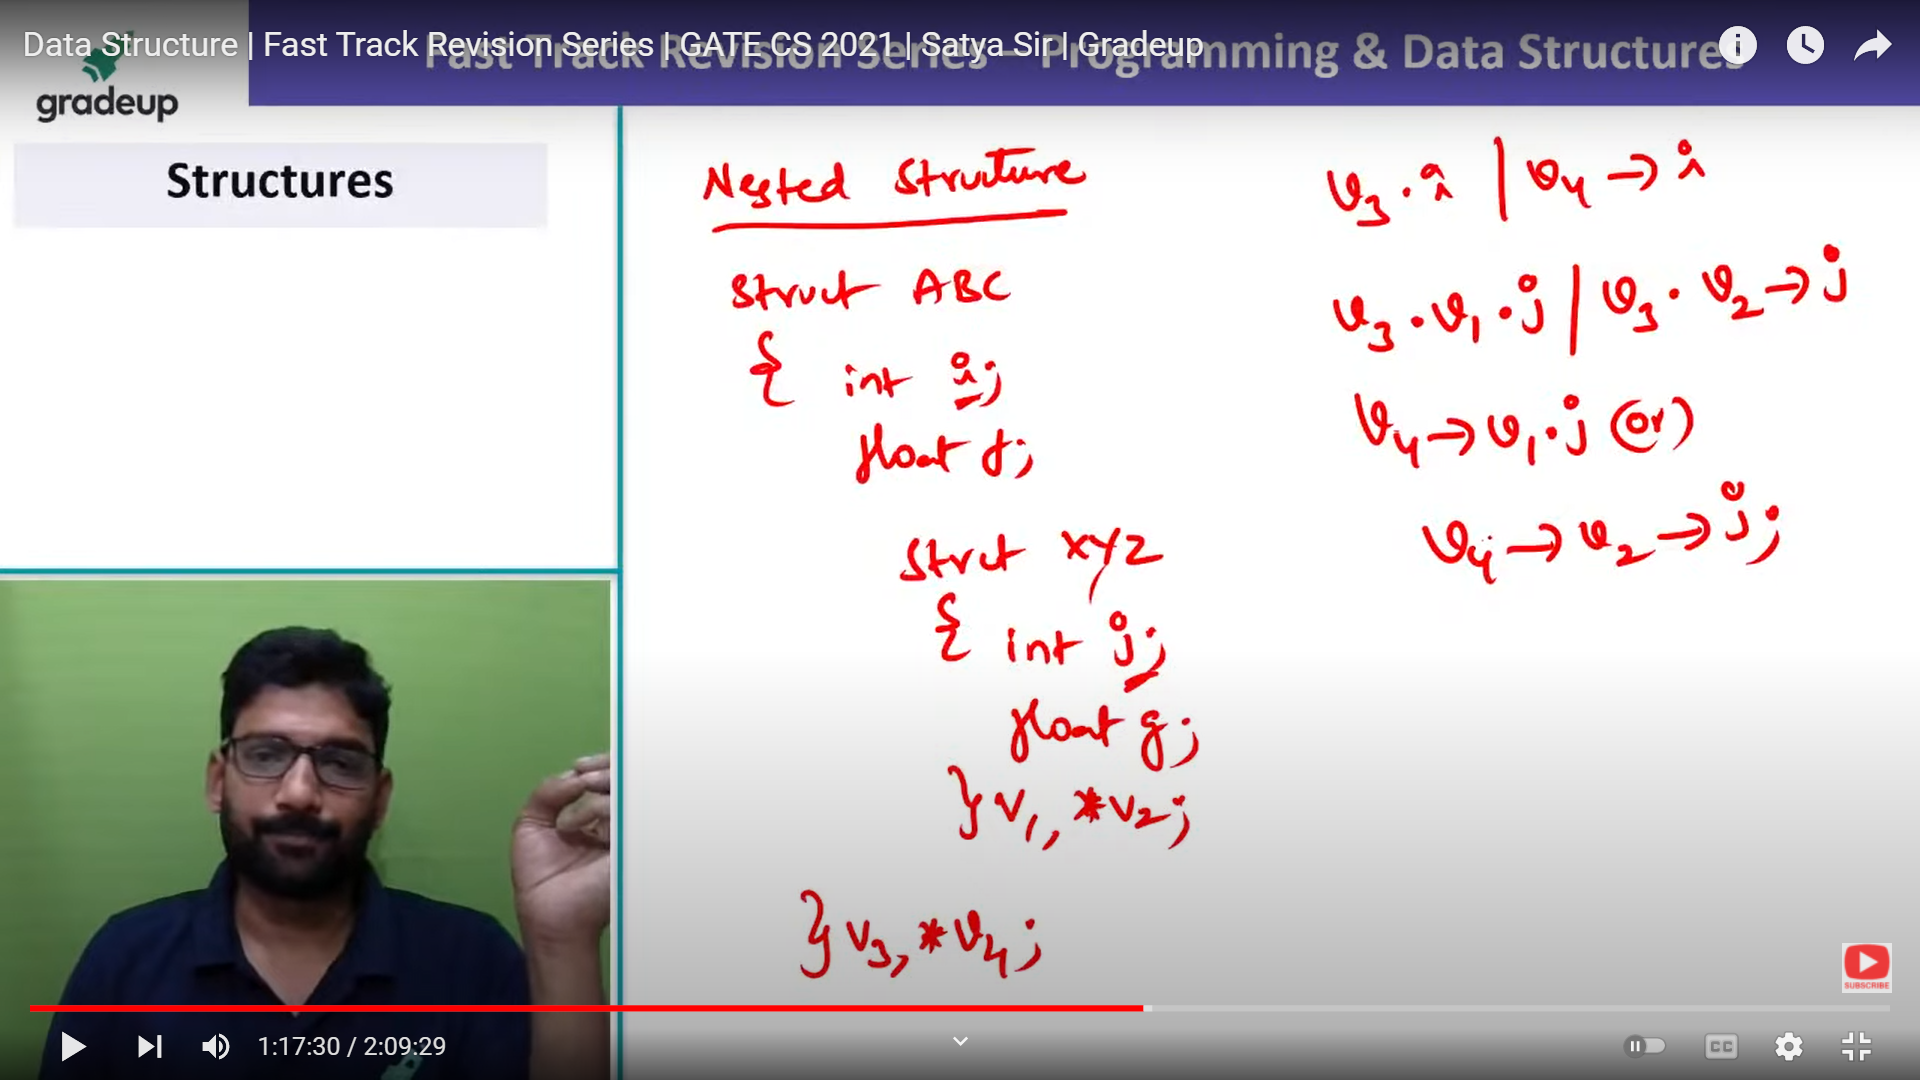 Data Structure | Fast Track Revision Series | GATE CS 2021 | Satya Sir | Gradeup
Fast Track Revision Series – Programming & Data Structures
gradeup
Structures
Nested Structure
Struct ABC
{ int i;
float f;
Strct XYZ
{ int j;
float g;
} V1, *V2;
} V3, *V4;
V3.i | V4→i
V3.V1.j | V3.V2→j
V4→V1.j (or)
V4→V2→j;
SUBSCRIBE
1:17:30 / 2:09:29
CC